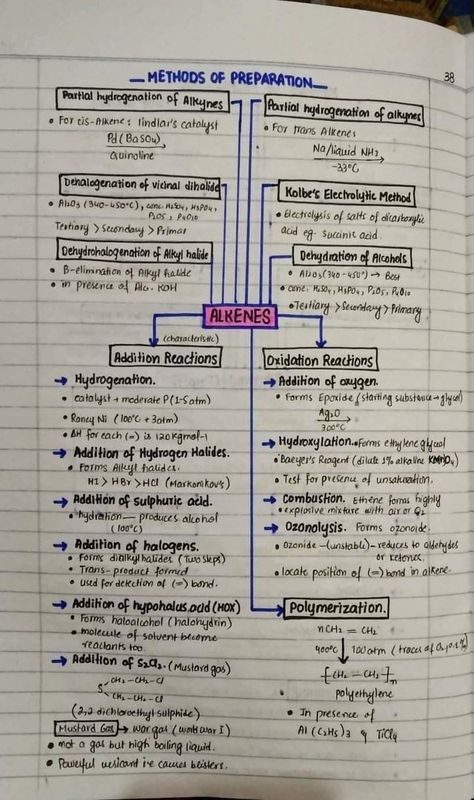 METHODS OF PREPARATION
38
Partial hydrogenation of Alkynes
• For cis-Alkene: lindlar's catalyst
Pd (BaSO4)
Quinoline
Partial hydrogenation of alkynes
• For trans Alkenes
Na/liquid NH3
-33°C
Dehalogenation of vicinal dihalide
• Al2O3 (340-450°C), conc. H2SO4, H3PO4,
P2O5, P4O10
Tertiary > Secondary > Primar
Kolbe's Electrolytic Method
• Electrolysis of salts of dicarboxylic
acid eg. succinic acid.
Dehydrohalogenation of Alkyl halide
• B-elimination of Alkyl halide
• in presence of Alc. KOH
Dehydration of Alcohols
• Al2O3 (340-450°) → Best
• conc. H2SO4, H3PO4, P2O5, P4O10
• Tertiary > Secondary > Primary
ALKENES
(characteristic)
Addition Reactions
→ Hydrogenation.
• catalyst + moderate P (1-5atm)
• Raney Ni (100°C + 3atm)
• ΔH for each (=) is 120 Kgmol-1
→ Addition of Hydrogen Halides.
• Forms Alkyl halides.
HI > HBr > HCl (Markonikov's)
→ Addition of sulphuric acid.
• hydration — produces alcohol
(100°C)
→ Addition of halogens.
• Forms dialkylhalides (Two steps)
• Trans-product formed
• Used for detection of (=) bond.
→ Addition of hypohalus acid (HOX)
• Forms haloalcohol (halohydrin)
• molecule of solvent become
reactants too.
→ Addition of S2Cl2. (Mustard gas)
CH2-CH2-Cl
S
CH2-CH2-Cl
(2,2 dichloroethyl sulphide)
Mustard Gas → war gas (world war I)
• not a gas but high boiling liquid.
• Powerful vesicant i.e causes blisters.
Oxidation Reactions
→ Addition of oxygen.
• Forms Epoxide (starting substance → glycol)
Ag2O
300°C
→ Hydroxylation. • Forms ethylene glycol
• Baeyer's Reagent (dilute 1% alkaline KMnO4)
• Test for presence of unsaturation.
→ Combustion. Ethene forms highly
• explosive mixture with air or O2
→ Ozonolysis. Forms ozonide.
• Ozonide — (unstable) — reduces to aldehydes
or ketones
• locate position of (=) bond in alkene.
Polymerization.
nCH2 = CH2
400°C 100 atm (traces of O2
[CH2 - CH2]n
polyethylene
• In presence of
Al (C2H5)3 & TiCl4